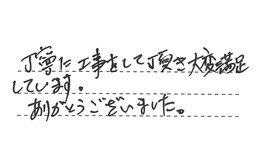 丁寧に工事をして頂き大変満足
しています。
ありがとうございました。